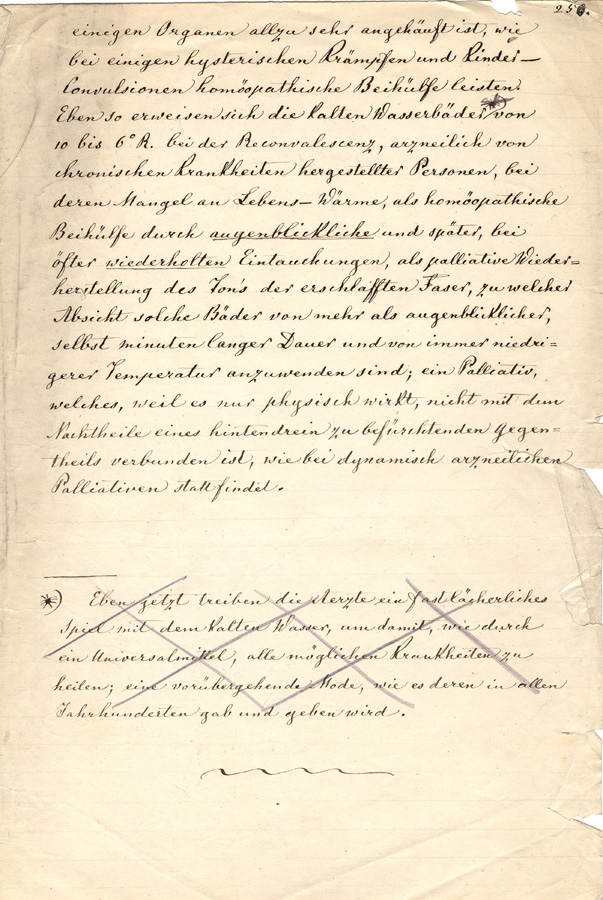 250.
einigen Organen allzu sehr angehäuft ist, wie
bei einigen hysterischen Krämpfen und Kinder-
Convulsionen homöopathische Beihülfe leisten.
Eben so erweisen sich die kalten Wasserbäder von
10 bis 6° R. bei der Reconvalescenz, arzneilich von
chronischen Krankheiten hergestellter Personen, bei
deren Mangel an Lebens-Wärme, als homöopathische
Beihülfe durch augenblickliche und später, bei
öfter wiederholten Eintauchungen, als palliative Wieder=
herstellung des Ton's der erschlafften Faser, zu welcher
Absicht solche Bäder von mehr als augenblicklicher,
selbst minuten langer Dauer und von immer niedri=
gerer Temperatur anzuwenden sind; ein Palliativ,
welches, weil es nur physisch wirkt, nicht mit dem
Nachtheile eines hintendrein zu befürchtenden Gegen=
theils verbunden ist, wie bei dynamisch arzneilichen
Palliativen statt findet.
*) Eben jetzt treiben die Aerzte ein fast lächerliches
Spiel mit dem kalten Wasser, um damit, wie durch
ein Universalmittel, alle möglichen Krankheiten zu
heilen; eine vorübergehende Mode, wie es deren in allen
Jahrhunderten gab und geben wird.